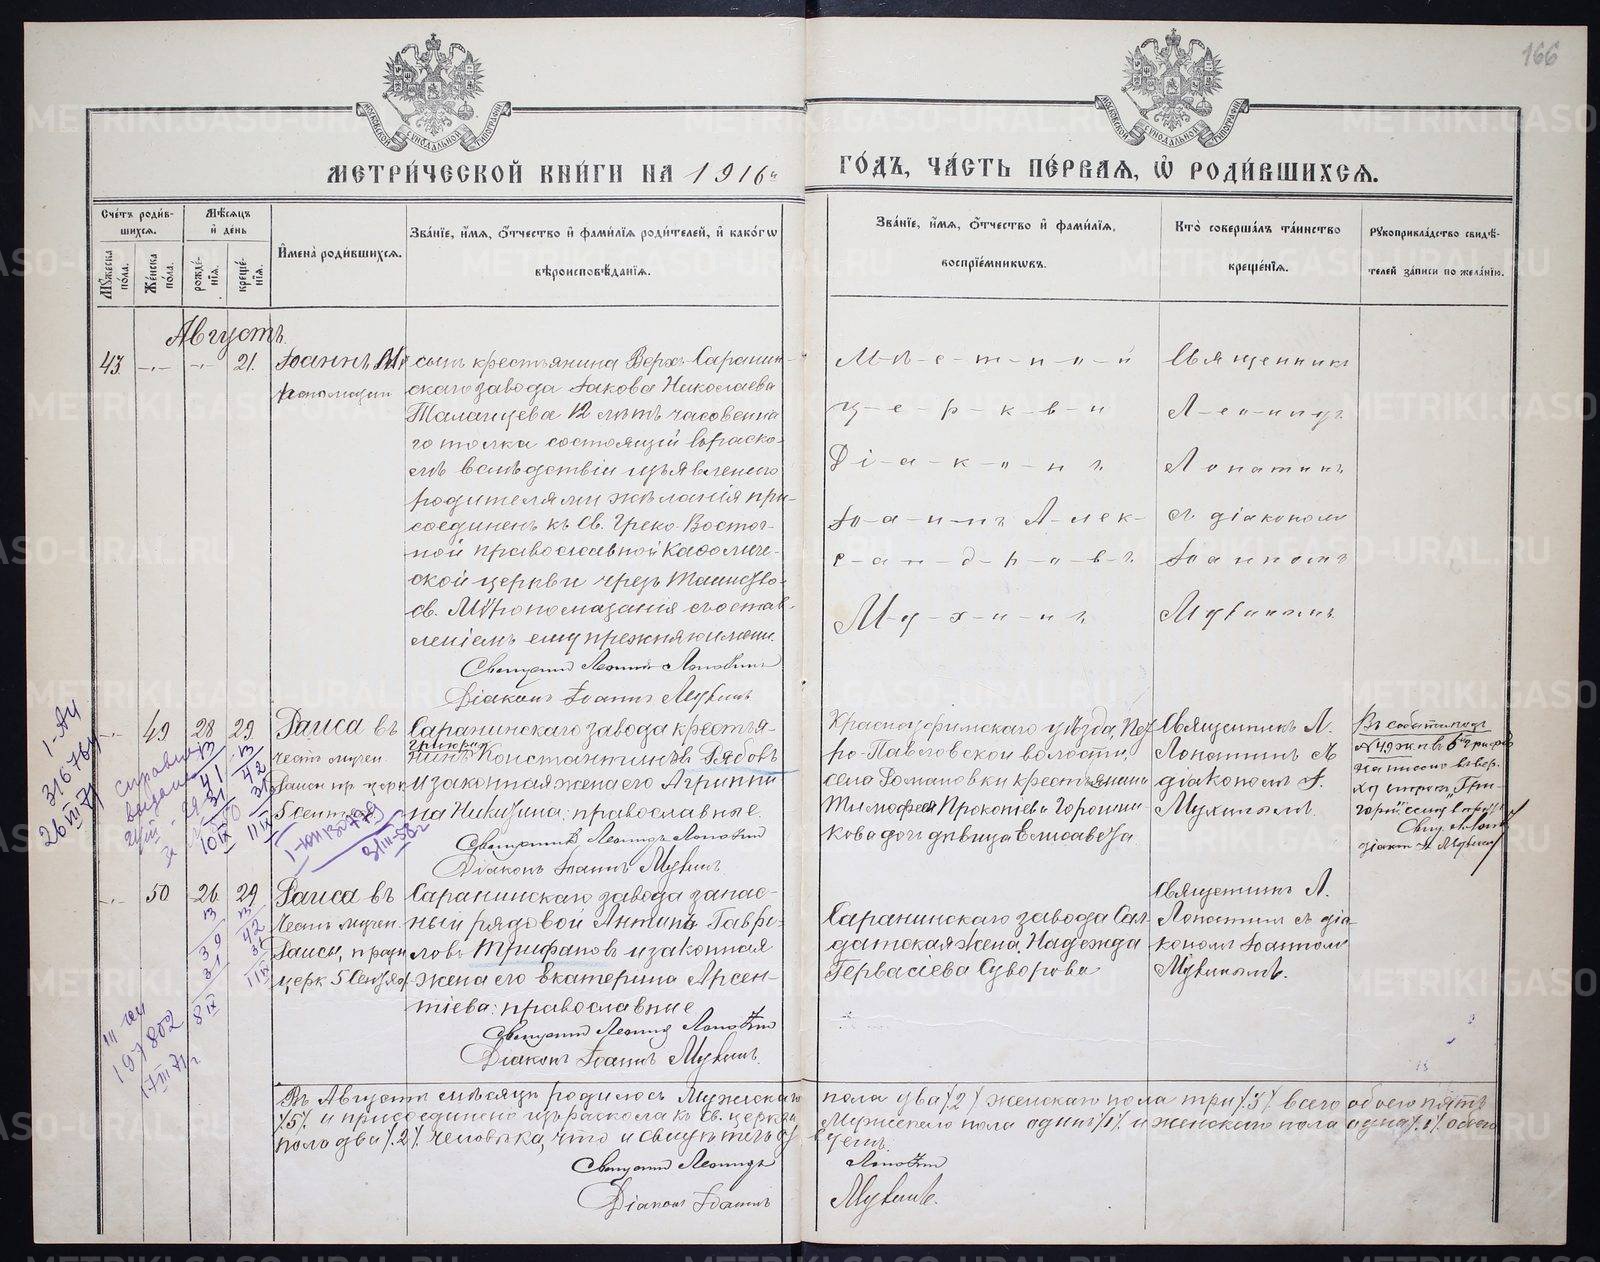 166
МЕТРИ́ЧЕСКОЙ КНИ́ГИ НА 1916й
ГО́ДЪ, ЧА́СТЬ ПЕ́РВАЯ, Ѽ РОДИ́ВШИХСЯ.
Сче́тъ роди́в-
шихся.
Мѣ́сяцъ
и҆ де́нь
Му́жеска по́ла.
Же́нска по́ла.
рожде́-
нїя.
креще́-
нїя.
И҆мена̀ роди́вшихся.
Зва́нїе, и҆́мя, о҆́тчество и҆ фами́лїя роди́телей, и҆ како́гѡ
вѣроисповѣ́данїя.
Зва́нїе, и҆́мя, о҆́тчество и҆ фами́лїя,
воспрїе́мникѡвъ.
Кто̀ соверша́лъ та́инство
креще́нїя.
Рꙋкоприкла́дство свидѣ́-
телей за́писи по жела́нїю.
Августъ.
43
21.
Іоаннъ
сынъ крестьянина Верхъ-Саранин-
скаго завода Іакова Николаева
Таланцева 12 лѣтъ часовенна
го толка состоящій въ раско-
лѣ вслѣдствіи изъявленнаго
родителями желанія при-
соединенъ къ Св. Греко-Восточ-
ной православной Каѳоличе-
ской церкви чрезъ Таинство
св. Мѵропомазанія съ остав-
леніемъ ему прежняго имени.
Священникъ Леонидъ Лопатинъ
Діаконъ Іоаннъ Мухинъ
М-ѣ-с-т-н-о-й
ц-е-р-к-в-и
Д-і-а-к-о-н-ъ
Іо-а-н-н-ъ А-лек-
с-а-н-д-р-о-в-ъ
М-у-х-и-н-ъ
Священникъ
Леонидъ
Лопатинъ
съ діакономъ
Іоанномъ
Мухинымъ.
49
28
29
Раиса въ
честь мучен.
Раисы пр. церк.
5 сентяб.
Саранинскаго завода крестья-
нинъ Константинъ Рябовъ
и законная жена его Агриппи-
на Никитина; православные.
Священникъ Леонидъ Лопатинъ
Діаконъ Іоаннъ Мухинъ.
Красноуфимскаго уѣзда, Пет-
ро-Павловской волости,
села Романовки крестьянина
Тимофея Прокопіева Горошни-
кова дочь дѣвица Елисавета.
Священникъ Л.
Лопатинъ съ
діакономъ І.
Мухинымъ.
Въ событіи подъ
№ 49 ж.п. въ 5й графѣ
написано въ вер-
ху строки „Гри-
горій"
Свящ. Л. Лопат
діакон І. Мухинъ
1-АИ
316764
26 III 71
справка
выдана
13
41
31
10 IX
13
42
31
11 IX
1-ЮИ 130779
31/III-58г
50
26
29
Раиса въ
Честь мучен.
Раисы, празд.
церк 5 Сентяб.
Саранинскаго завода запас-
ный рядовой Антипъ Гаври-
ловъ Трифановъ и законная
жена его Екатерина Арсен-
тіева; православные
Священникъ Леонидъ Лопатинъ
Діаконъ Іоаннъ Мухинъ.
Саранинскаго завода Сол-
датская жена Надежда
Гервасіева Суворова
Священникъ Л.
Лопатинъ съ діа-
кономъ Іоанномъ
Мухинымъ.
13
39
31
8 IX
13
42
31
11 IX
197802
17 III 71г
Въ Августѣ мѣсяцѣ родилось Мужескаго пола два /.2/ женскаго пола три /.3/. всего обоего пять
/.5/. и присоединено изъ раскола къ Св. церкви Мужескаго пола одинъ /.1/. и женскаго пола одна /.1/. обоего
пола два /.2/. человѣка, что и свидѣтельствуемъ.
Священникъ Леонидъ Лопатинъ
Діаконъ Іоаннъ Мухинъ.
METRIKI.GASO-URAL.RU